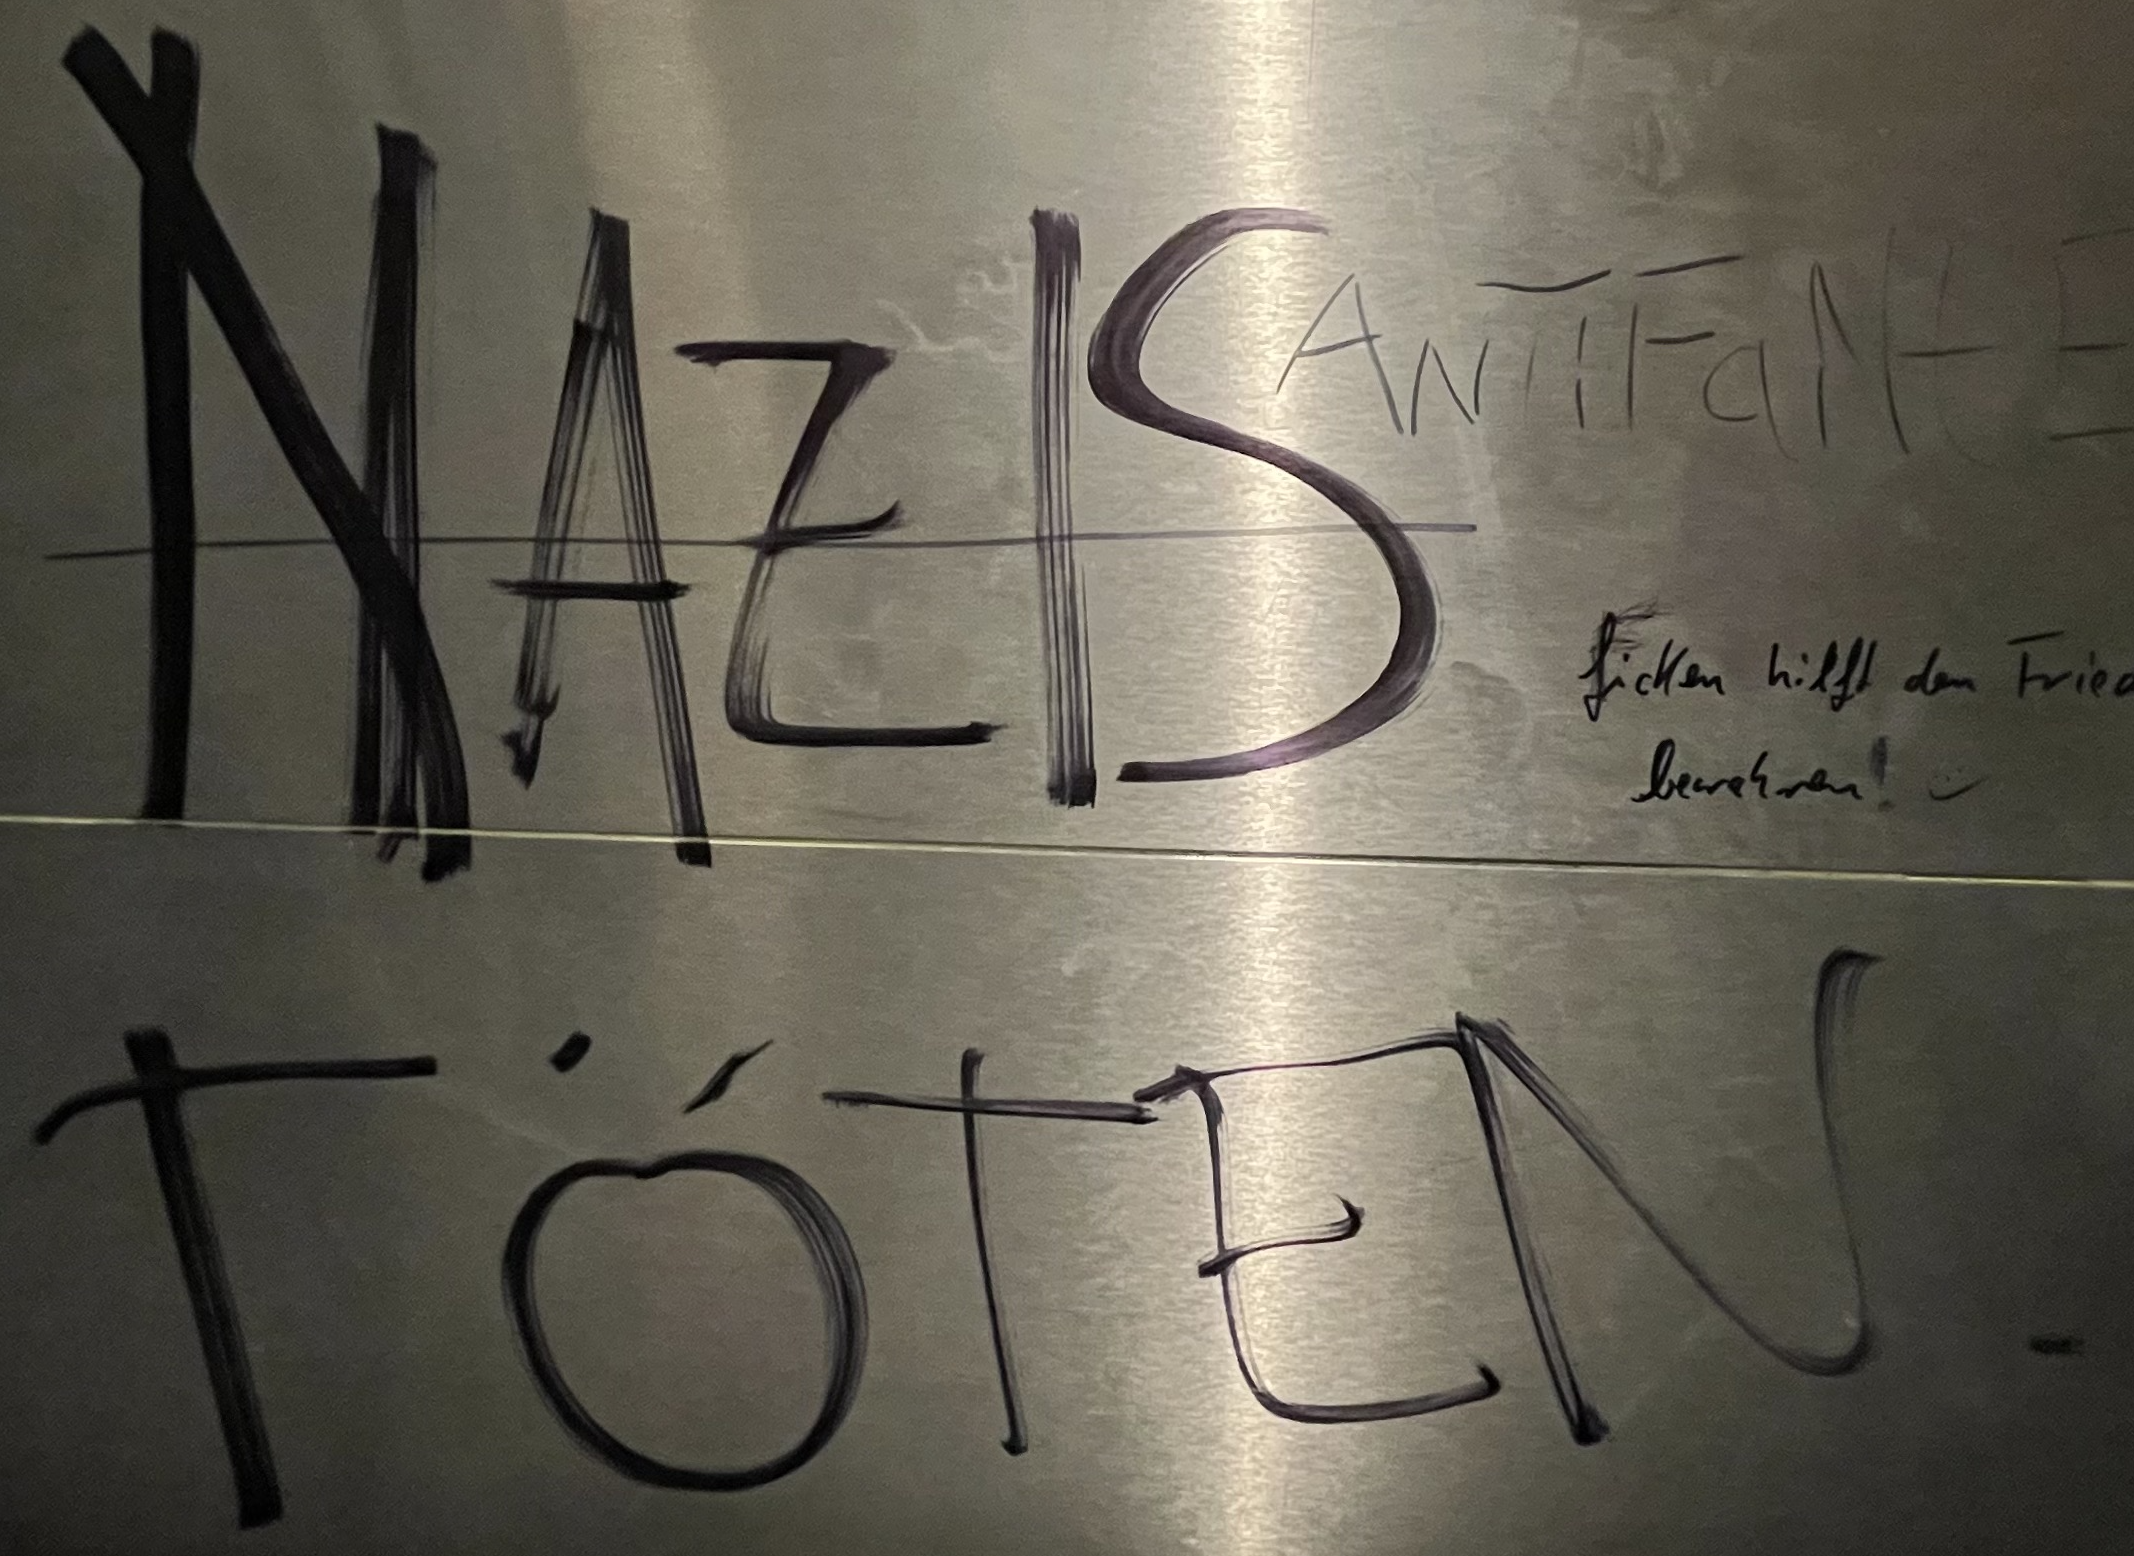 NAZIS
ANTIFANTE
ficken hilft den Fried
bewahren! :)
TÖTEN.